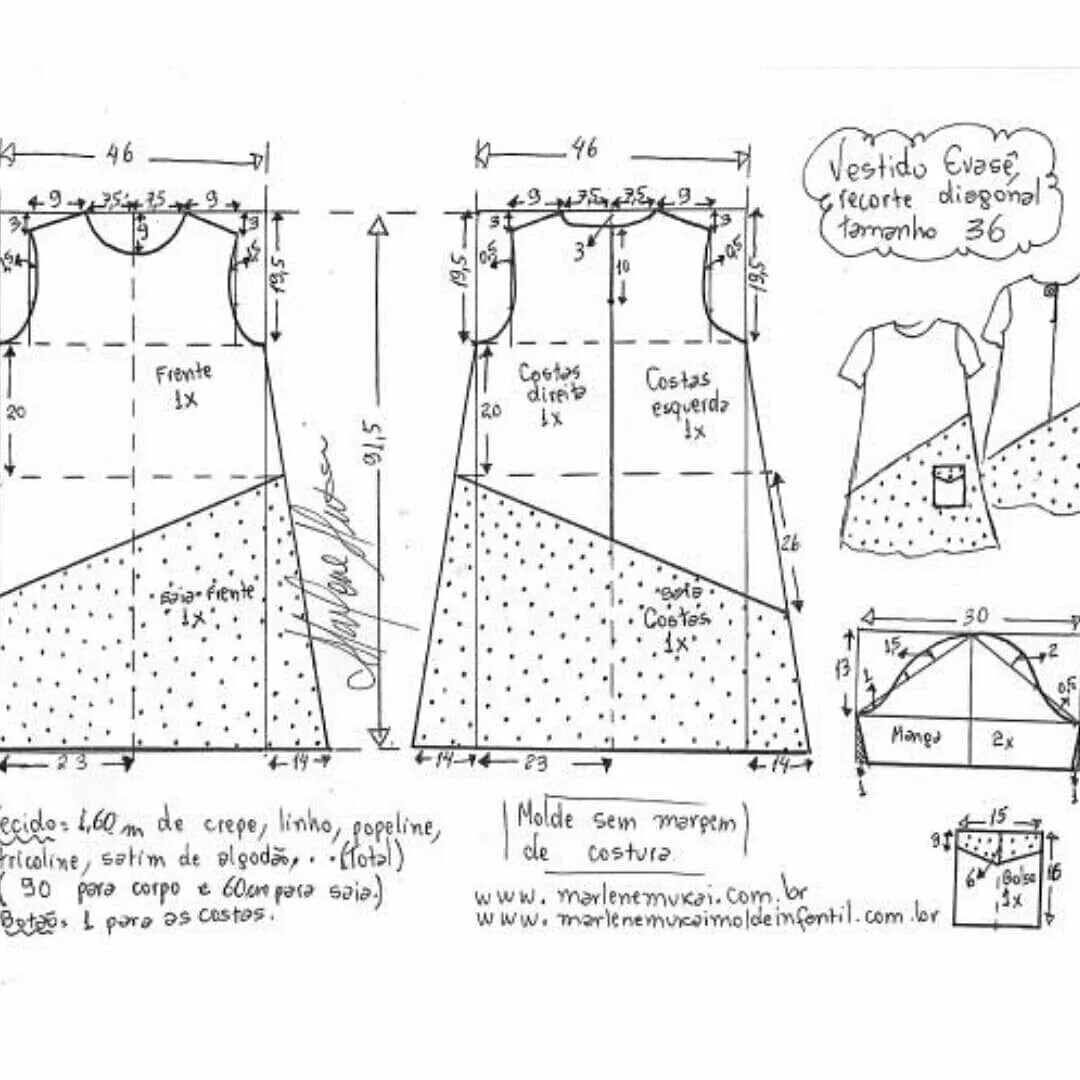 46
46
Vestido Evasê,
recorte diagonal
tamanho 36
9 7,5 7,5 9
9 7,5 7,5 9
3 9 3
3 3 3
19,5
19,5 0,5 10 0,5 19,5
Frente
1x
Costas
direita
1x
Costas
esquerda
1x
20
20
91,5
26
saia frente
1x
saia
Costas
1x
Marlene Mukai
30
13 1,5 2
1 0,5
Manga 2x
1 1
23 14
14 23 14
ecido= 1,60 m de crepe, linho, popeline,
tricoline, satim de algodão, . . (total)
( 90 para corpo e 60cm para saia.)
Botão= 1 para as costas.
Molde sem margem
de costura
www.marlenemukai.com.br
www.marlenemukaimoldeinfantil.com.br
15
9 6 Bolso 16
1x